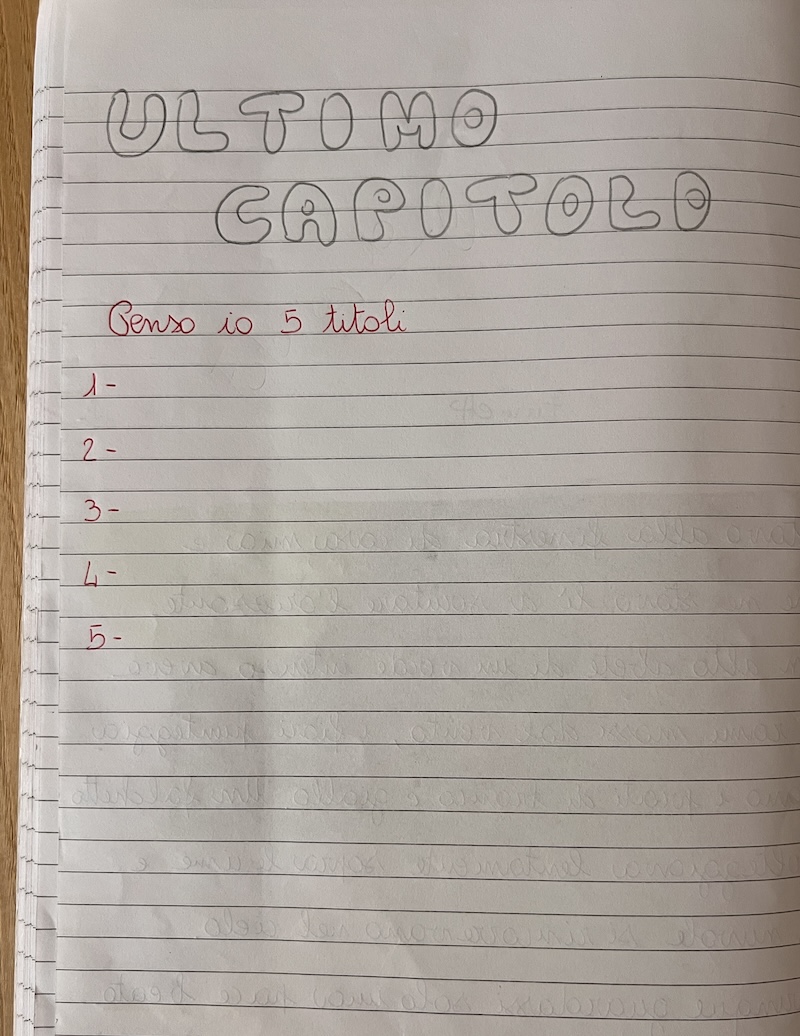 ULTIMO
CAPITOLO
Penso io 5 titoli
1-
2-
3-
4-
5-